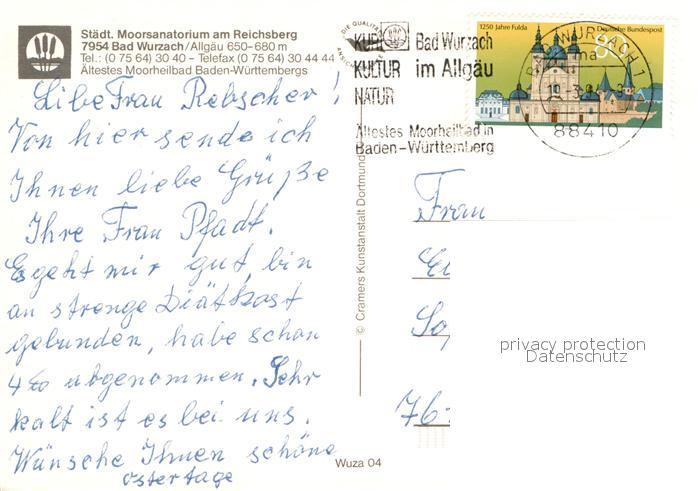 Städt. Moorsanatorium am Reichsberg
7954 Bad Wurzach/Allgäu 650–680 m
Tel.: (0 75 64) 30 40 - Telefax (0 75 64) 30 44 44
Ältestes Moorheilbad Baden-Württembergs
Liebe Frau Rebscher!
Von hier sende ich
Ihnen liebe Grüße
Ihre Frau Pfadt.
Es geht mir gut, bin
an strenge Diätkost
gebunden, habe schon
abgenommen. Sehr
kalt ist es bei uns.
Wünsche Ihnen schöne
Ostertage
© Cramers Kunstanstalt Dortmund
Wuza 04
DIE QUALITÄT
KUR Bad Wurzach
KULTUR im Allgäu
NATUR
Ältestes Moorheilbad in
Baden-Württemberg
1250 Jahre Fulda
Deutsche Bundespost
80
BAD WURZACH 1
ma
88410
Frau
76
privacy protection
Datenschutz